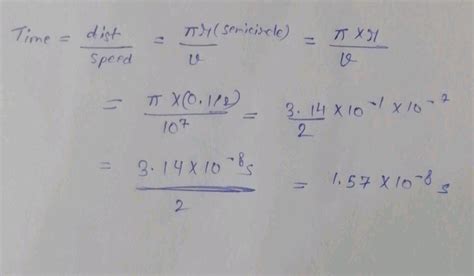 Time = dist/speed = πr(semicircle)/v = π×r/v
= π×(0.1/2)/10⁷ = 3.14/2 ×10⁻¹×10⁻⁷
= 3.14×10⁻⁸s/2 = 1.57×10⁻⁸ s